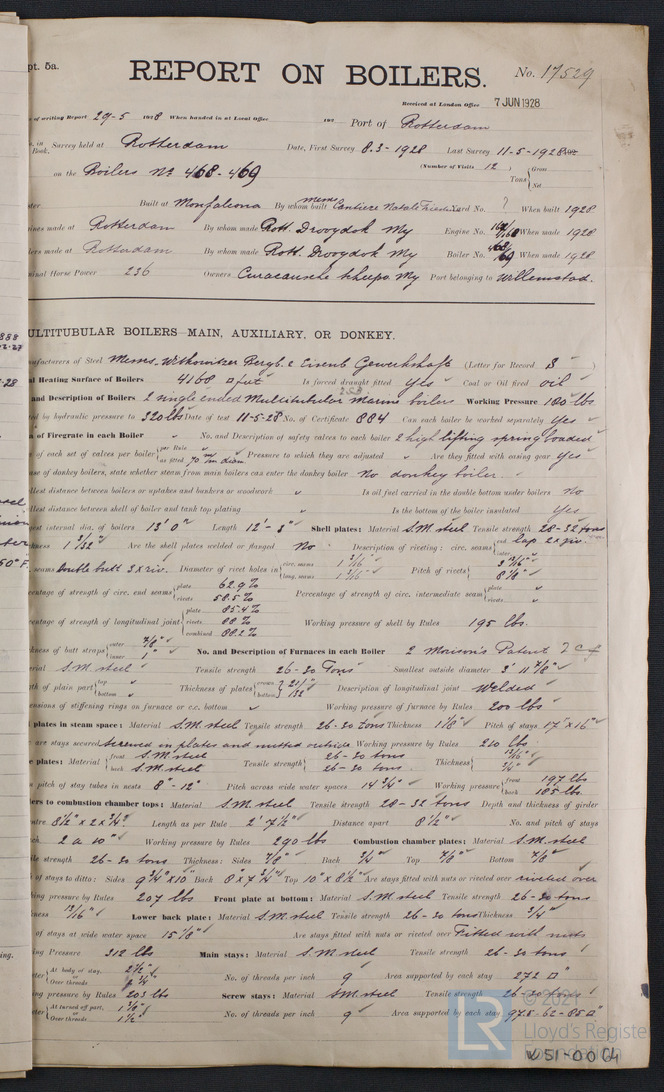 pt. 5a.
REPORT ON BOILERS.
No. 17529
Received at London Office 7 JUN 1928
of writing Report 29-5 1928 When handed in at Local Office 192 Port of Rotterdam
in Book. Survey held at Rotterdam Date, First Survey 8.3-1928 Last Survey 11-5-1928
on the Boilers No 468-469 (Number of Visits 12 ) Tons { Gross Net
Built at Monfalcona By whom built Messrs Cantiere Navale Yard No. ? When built 1928
ines made at Rotterdam By whom made Rott. Droogdok My Engine No. When made 1928
lers made at Rotterdam By whom made Rott. Droogdok My Boiler No. 468/469 When made 1928
inal Horse Power 236 Owners Curacausche Scheeps. My Port belonging to Willemstad.
ULTITUBULAR BOILERS MAIN, AUXILIARY, OR DONKEY.
nufacturers of Steel Messrs. Witkowitzer Bergb. & Eisenb Gewerkshaft (Letter for Record S )
al Heating Surface of Boilers 4168 □ feet Is forced draught fitted yes Coal or Oil fired oil
and Description of Boilers 2 single ended Multitubular marine boilers Working Pressure 180 lbs
ted by hydraulic pressure to 320 lbs Date of test 11-5-28 No. of Certificate 884 Can each boiler be worked separately yes
a of Firegrate in each Boiler No. and Description of safety valves to each boiler 2 high lifting spring loaded
of each set of valves per boiler { per Rule as fitted 70 m/m diam Pressure to which they are adjusted Are they fitted with easing gear yes
ase of donkey boilers, state whether steam from main boilers can enter the donkey boiler no donkey boiler.
llest distance between boilers or uptakes and bunkers or woodwork Is oil fuel carried in the double bottom under boilers no
llest distance between shell of boiler and tank top plating Is the bottom of the boiler insulated yes
est internal dia. of boilers 13' 0" Length 12'-3" Shell plates: Material S.M. steel Tensile strength 28-32 tons
kness 1 3/32" Are the shell plates welded or flanged No Description of riveting: circ. seams { end lap 2 x riv.
seams double butt 3 x riv. Diameter of rivet holes in { circ. seams 1 3/16" long. seams 1 3/16" Pitch of rivets { 3 13/16" 8 1/8"
centage of strength of circ. end seams { plate 62.9% rivets 58.5% Percentage of strength of circ. intermediate seam { plate rivets
centage of strength of longitudinal joint { plate 85.4% rivets 88% combined 88.2% Working pressure of shell by Rules 195 lbs.
kness of butt straps { outer 7/8" inner 1" No. and Description of Furnaces in each Boiler 2 Morison's Patent
rial S.M. steel Tensile strength 26-30 Tons Smallest outside diameter 3' 11 7/8"
th of plain part { top bottom Thickness of plates { crown bottom } 21/32" Description of longitudinal joint Welded
ensions of stiffening rings on furnace or c.c. bottom Working pressure of furnace by Rules 200 lbs
plates in steam space: Material S.M. steel Tensile strength 26-30 tons Thickness 1 1/8" Pitch of stays 17" x 16"
are stays secured screwed in plates and nutted outside Working pressure by Rules 210 lbs.
e plates: Material { front S.M. steel back S.M. steel Tensile strength { 26-30 tons 26-30 tons Thickness { 13/16" 3/4"
n pitch of stay tubes in nests 8"-12" Pitch across wide water spaces 14 3/4" Working pressure { front 197 lbs back 185 lbs
ers to combustion chamber tops: Material S.M. steel Tensile strength 28-32 tons Depth and thickness of girder
entre 8 1/2" x 2 x 3/4" Length as per Rule 2' 7 1/2" Distance apart 8 1/2" No. and pitch of stays
ch 2 a 10" Working pressure by Rules 290 lbs Combustion chamber plates: Material S.M. steel
ile strength 26-30 tons Thickness: Sides 7/8" Back 3/4" Top 7/8" Bottom 7/8"
of stays to ditto: Sides 9 3/4" x 10" Back 8" x 7 3/4" Top 10" x 8 1/2" Are stays fitted with nuts or riveted over riveted over
king pressure by Rules 207 lbs Front plate at bottom: Material S.M. steel Tensile strength 26-30 tons
kness 13/16" Lower back plate: Material S.M. steel Tensile strength 26-30 tons Thickness 3/4"
of stays at wide water space 15 7/8" Are stays fitted with nuts or riveted over Fitted with nuts
ng Pressure 312 lbs Main stays: Material S.M. steel Tensile strength 26-30 tons
eter { At body of stay, or Over threads No. of threads per inch 9 Area supported by each stay 272 □"
ing pressure by Rules 203 lbs Screw stays: Material S.M. steel Tensile strength 26-30 tons
eter { At turned off part, or Over threads 1 1/2" No. of threads per inch 9 Area supported by each stay 97.5-62-85 □"
© 2021
LR Lloyd's Register
Foundation
W51-0064